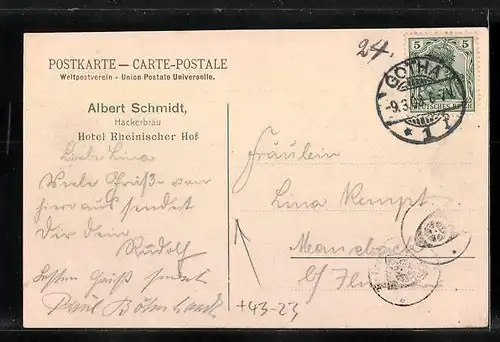 24.
POSTKARTE — CARTE-POSTALE
Weltpostverein - Union Postale Universelle.
5 5
DEUTSCHES REICH
GOTHA
-9.3.
* 1
Albert Schmidt,
Hackerbräu
Hotel Rheinischer Hof
Liebe Lina
Viele Grüße von
hier aus sendet
Dir dein
Rudolf
Besten Gruß sendet
Paul
Fräulein
Lina
+43-23